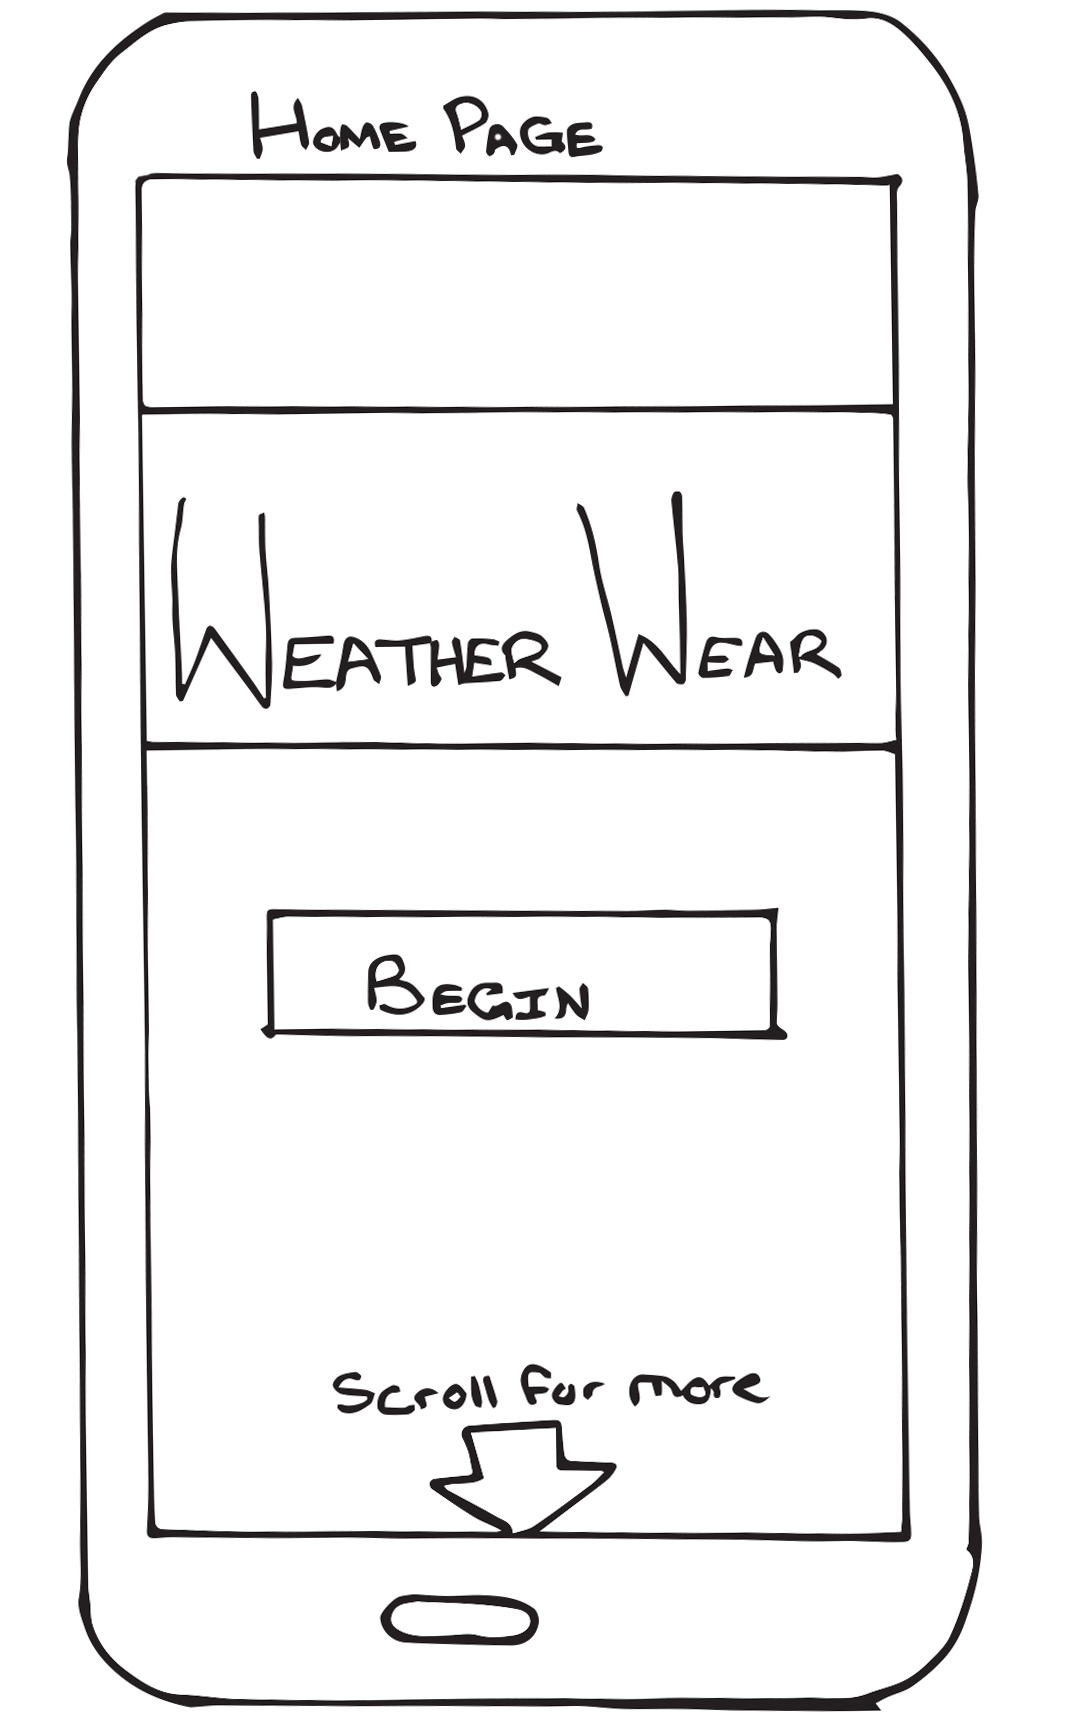 Home Page
Weather Wear
Begin
Scroll for more